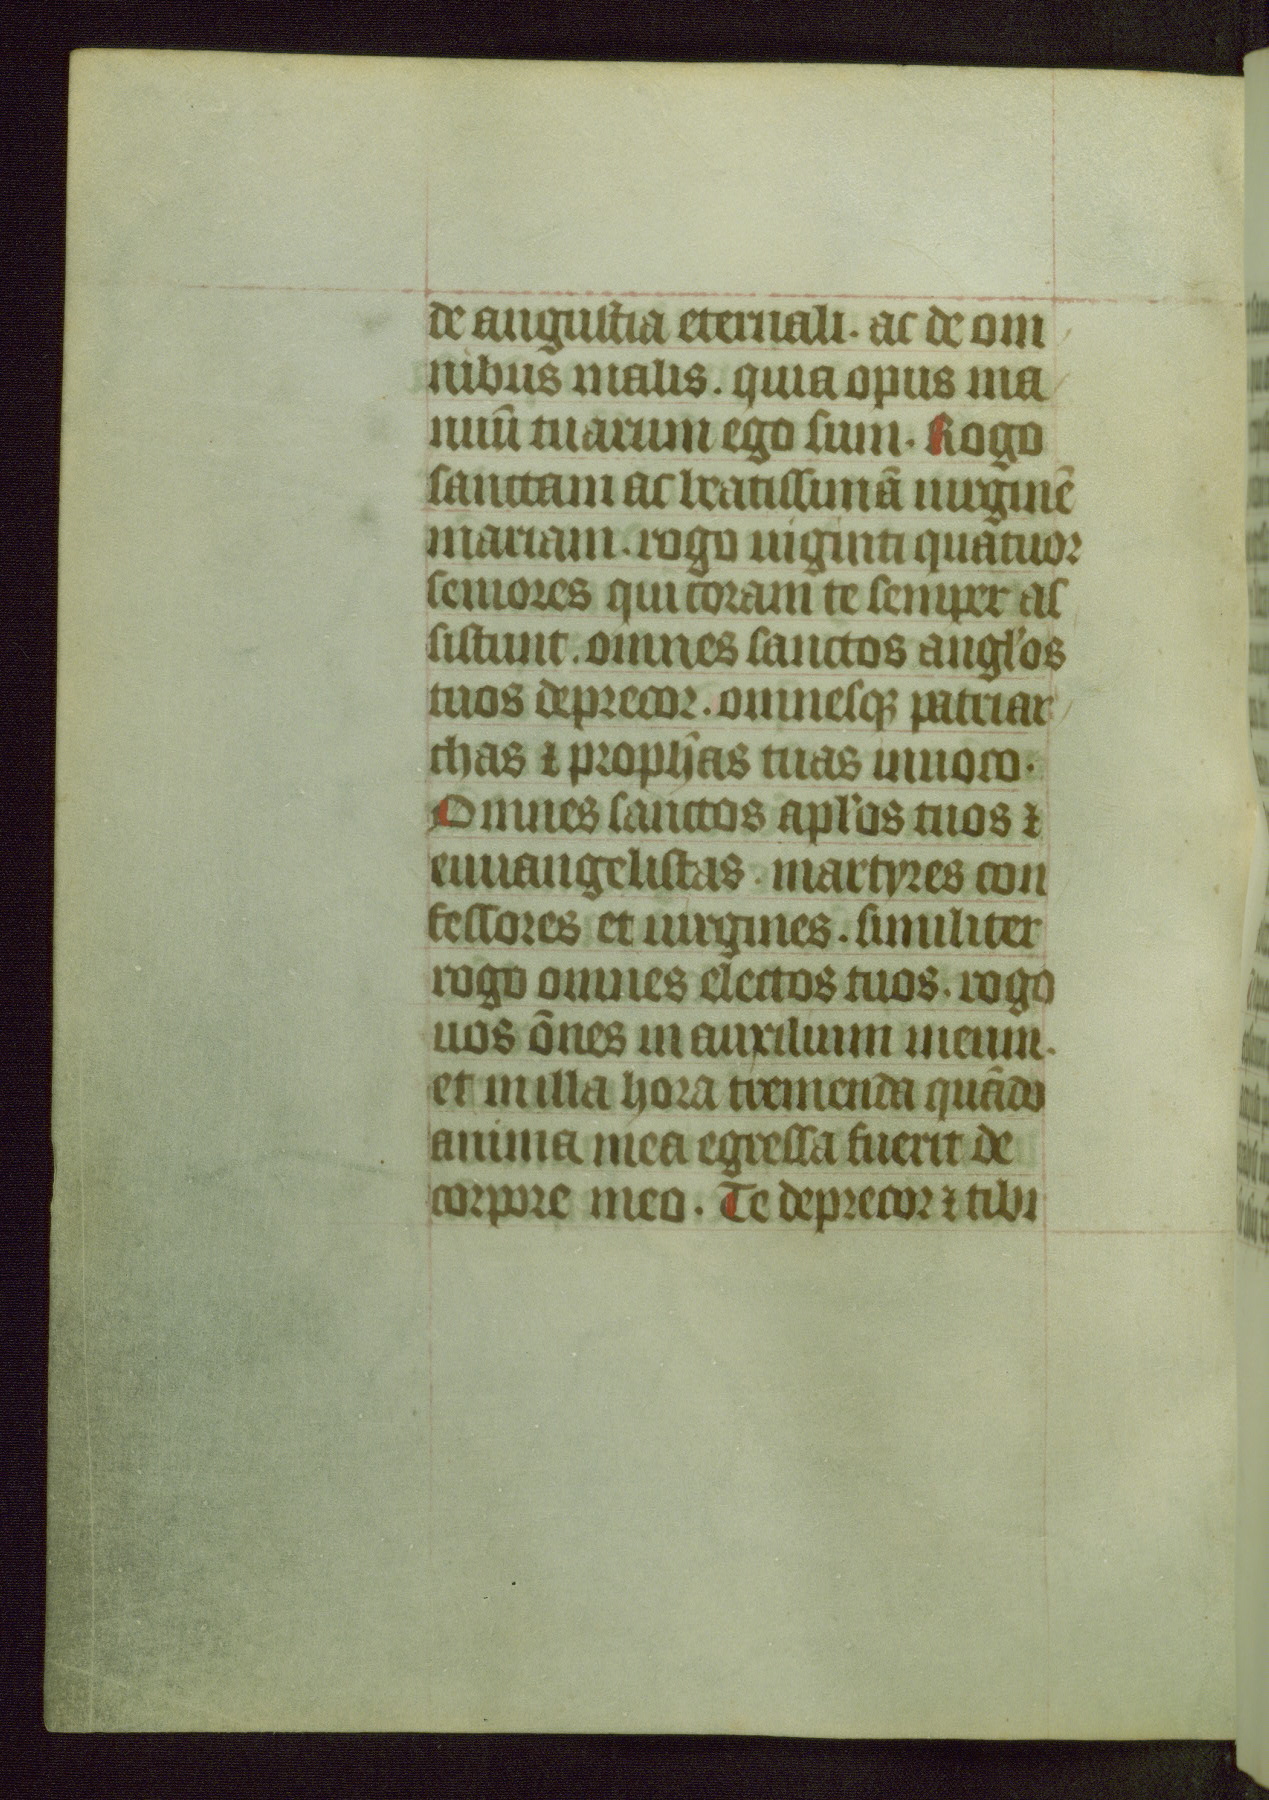 de angustia eternali. ac de om
nibus malis. quia opus ma
nuū tuarum ego sum. Rogo
sanctam ac beatissimā uirginē
mariam. rogo uiginti quatuor
seniores qui coram te semper as
sistunt. omnes sanctos angl'os
tuos deprecor. omnesqꝫ patriar
chas ⁊ proph̄as tuas inuoco.
Omnes sanctos apl'os tuos ⁊
euuangelistas. martyres con
fessores et uirgines. similiter
rogo omnes electos tuos. rogo
uos ōnes in auxilium meum.
et in illa hora tremenda quādo
anima mea egressa fuerit de
corpore meo. Te deprecor ⁊ tibi